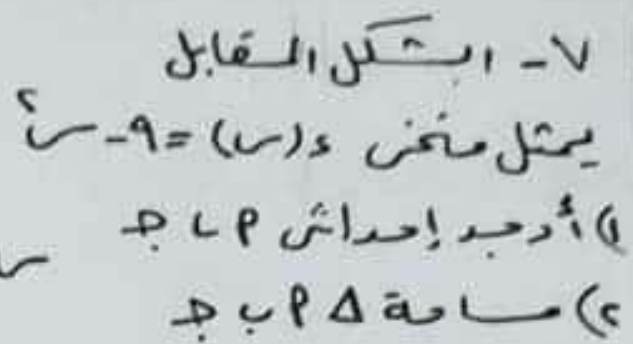 ٧- الشكل المقابل
يمثل منحنى د(س) = ٩ - س²
١) أوجد إحداثى P ، ج
س
٢) مساحة Δ P ب ج